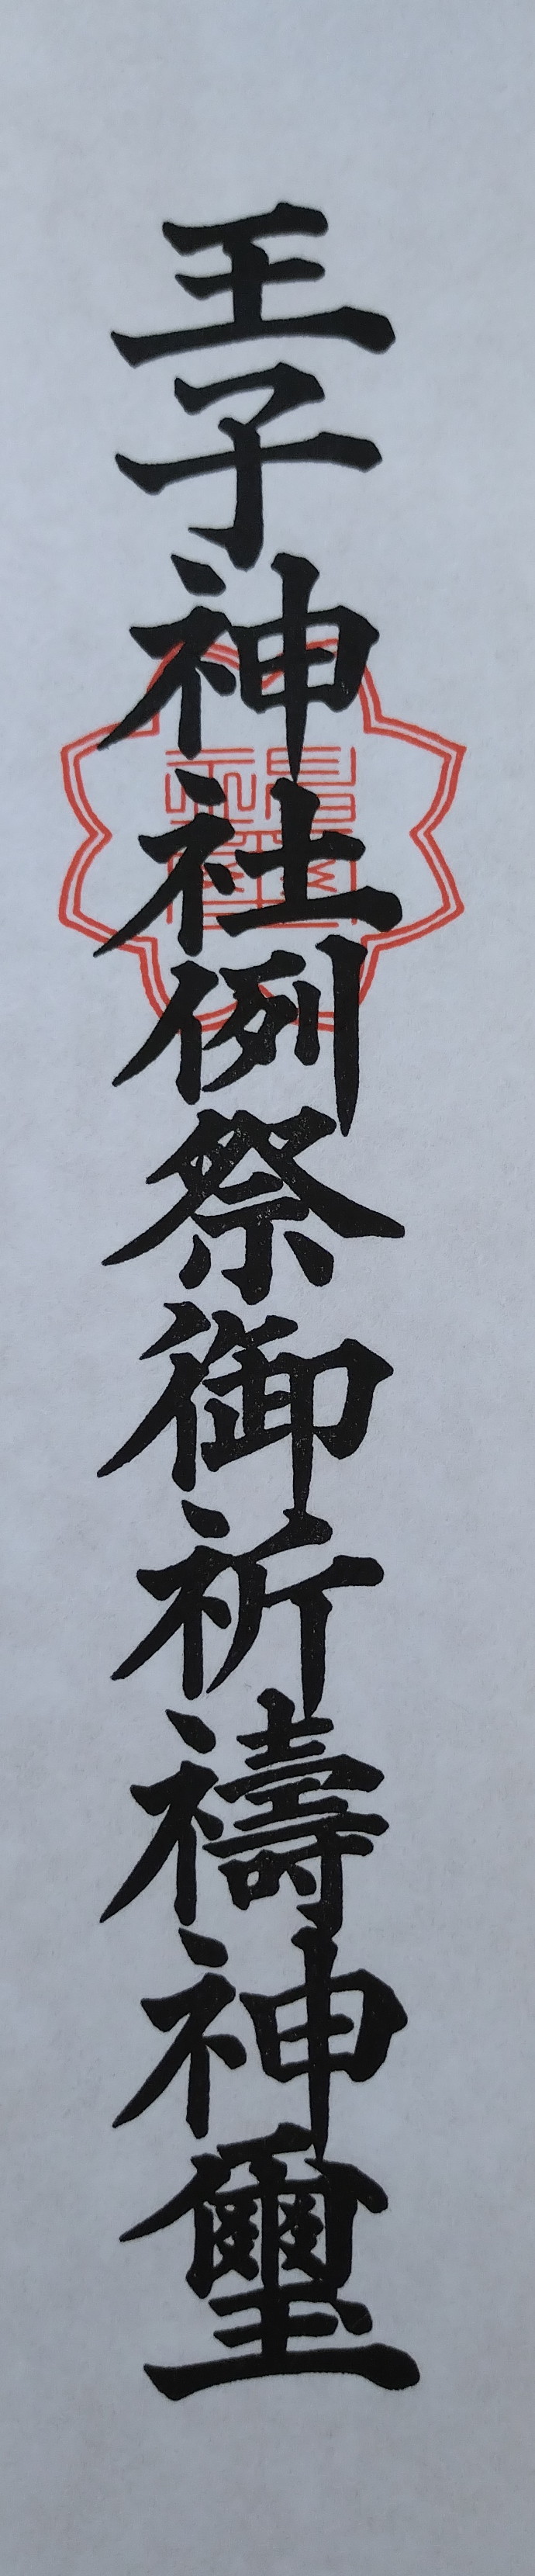 王子神社例祭御祈禱神璽